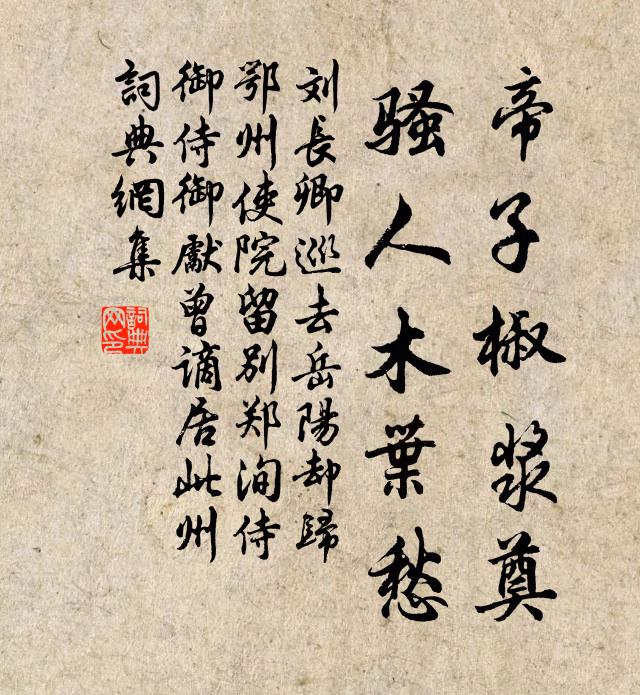 帝子椒漿奠
騷人木葉愁
刘長卿巡去岳陽却歸
鄂州使院留别郑洵侍
御侍御獻曾谪居此州
詞典網集
詞典
网印